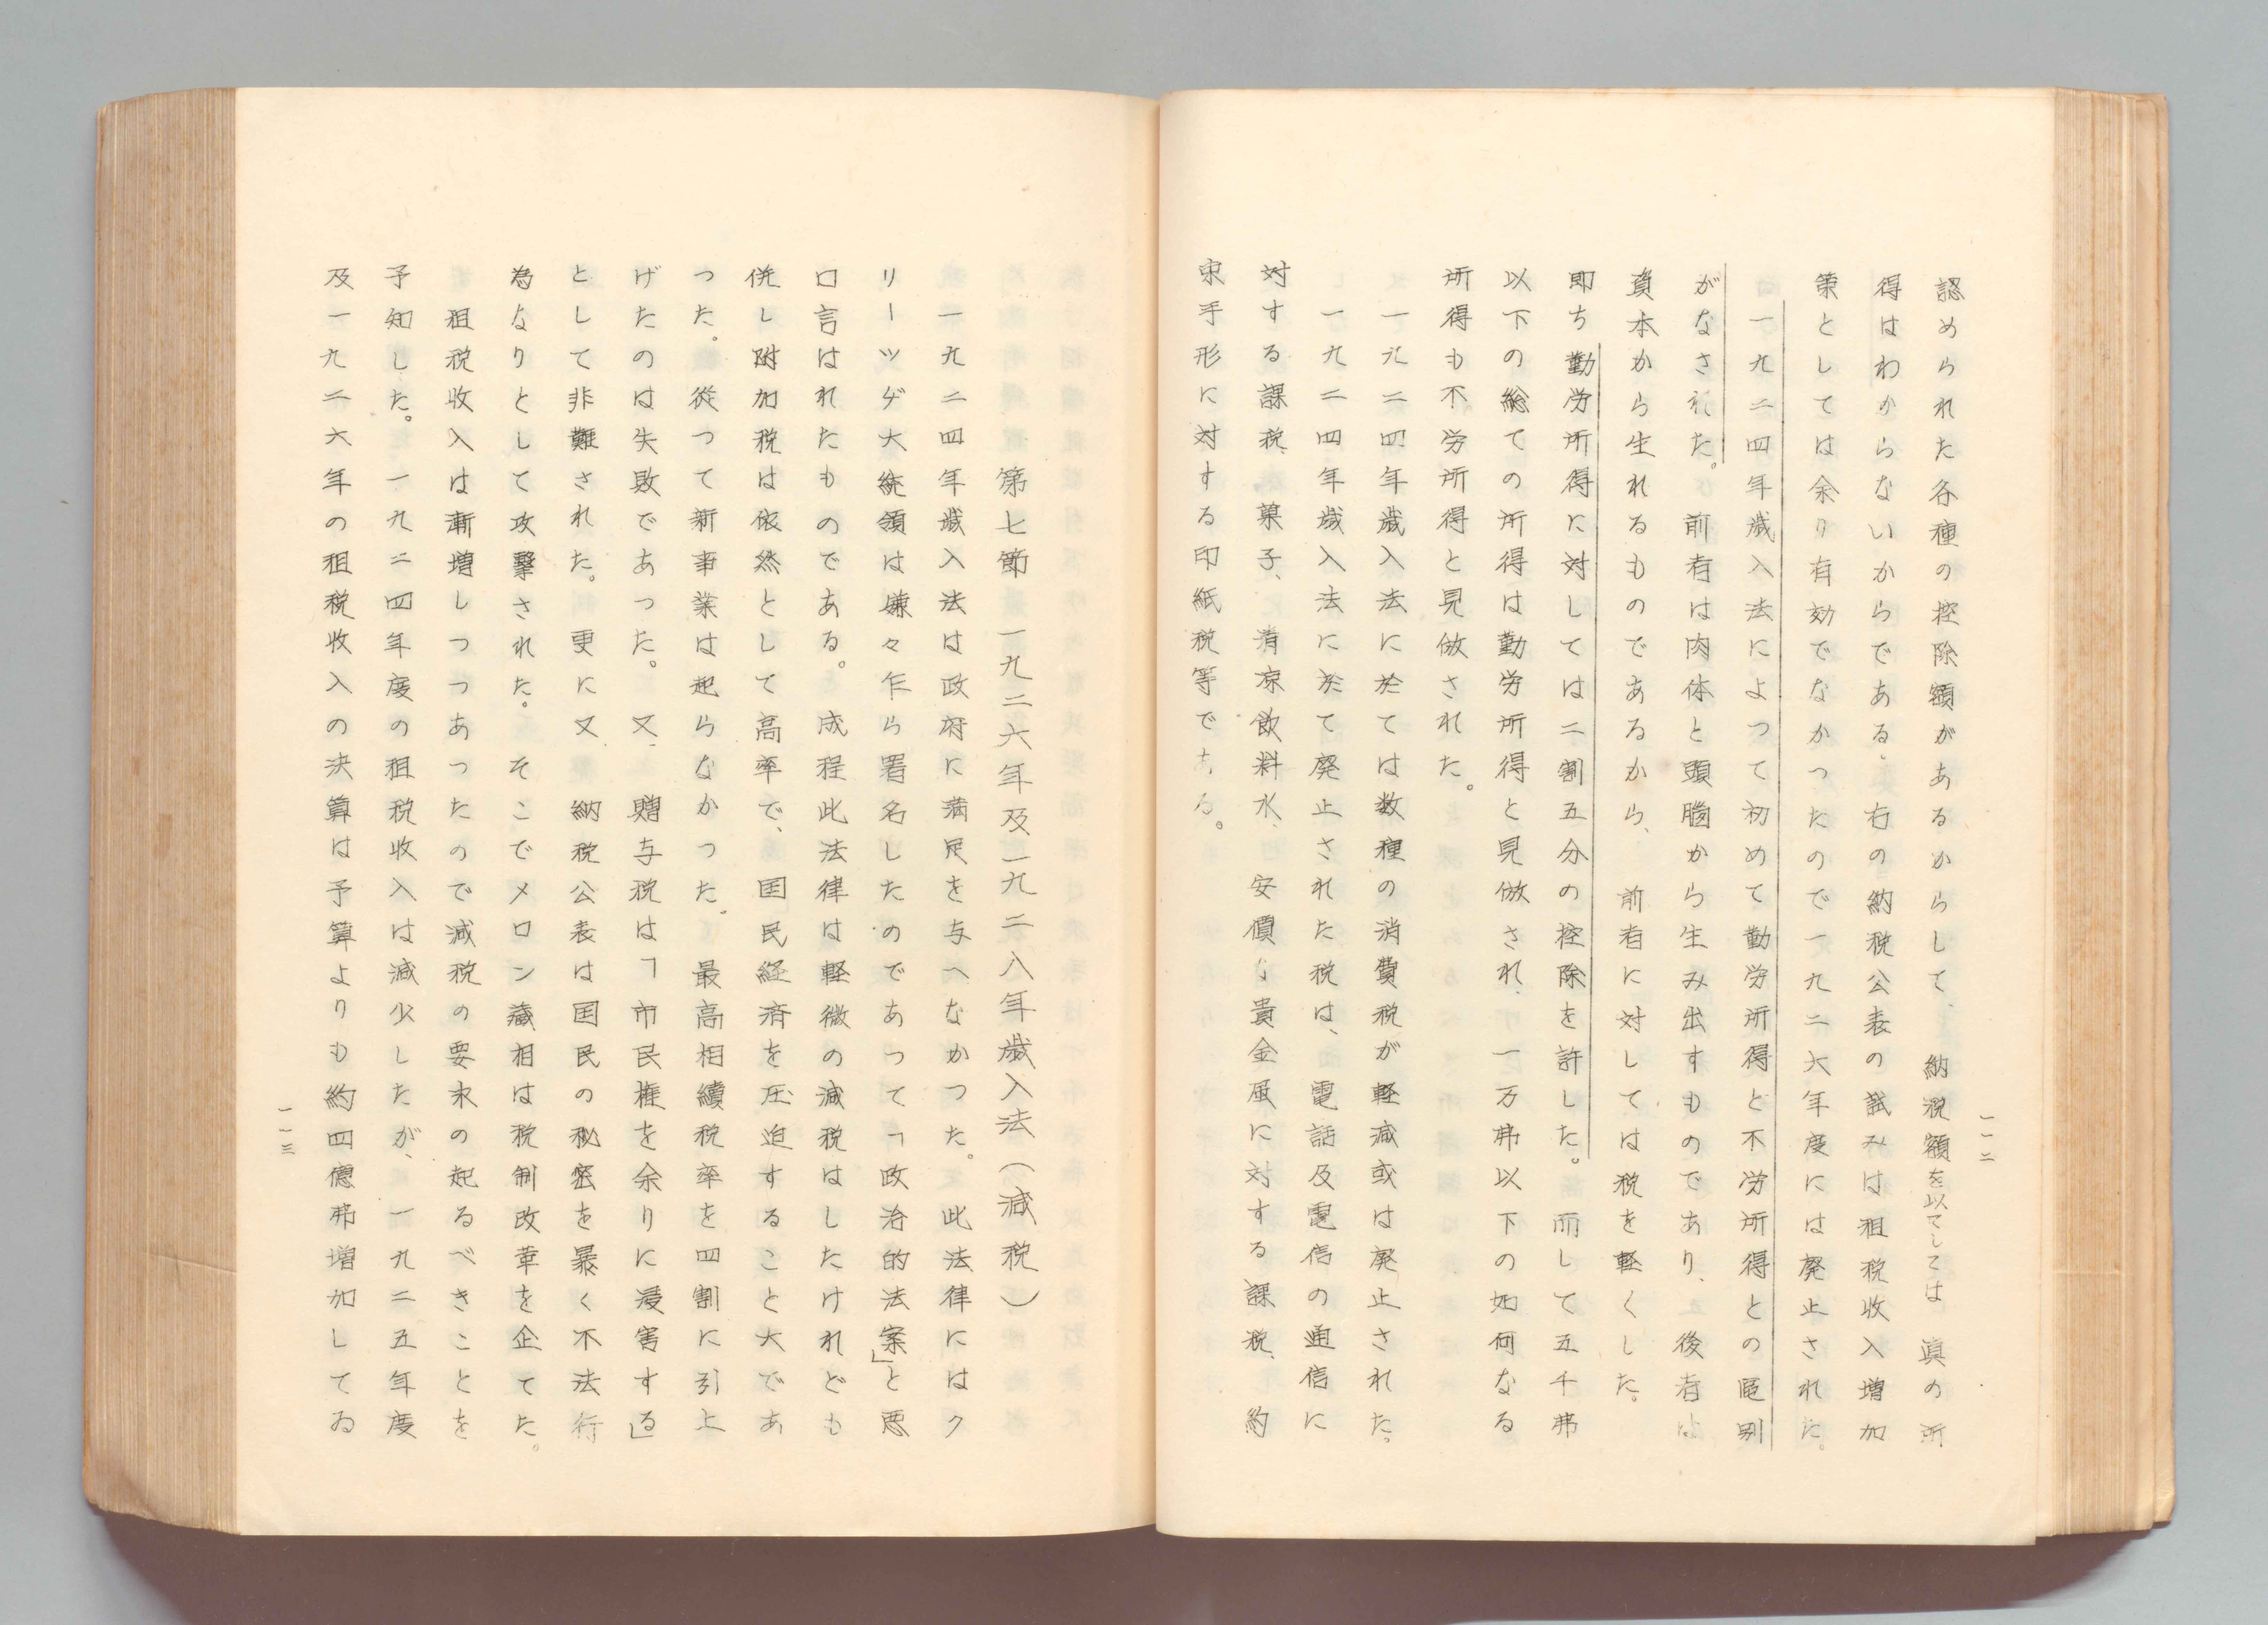 一一二
認められた各種の控除額があるからして、納税額を以てしては真の所
得はわからないからである。右の納税公表の試みは租税収入増加
策としては余り有効でなかつたので一九二六年度には廃止された。
一九二四年歳入法によつて初めて勤労所得と不労所得との区別
がなされた。前者は肉体と頭脳から生み出すものであり、後者は
資本から生れるものであるから、前者に対しては税を軽くした。
即ち勤労所得に対しては二割五分の控除を許した。而して五千弗
以下の総ての所得は勤労所得と見做され、一万弗以下の如何なる
所得も不労所得と見做された。
一九二四年歳入法に於ては数種の消費税が軽減或は廃止された。
一九二四年歳入法に於て廃止された税は、電話及電信の通信に
対する課税、菓子、清涼飲料水、安價な貴金属に対する課税、約
束手形に対する印紙税等である。
第七節 一九二六年及一九二八年歳入法(減税)
一九二四年歳入法は政府に満足を与へなかつた。此法律にはク
リーツヂ大統領は嫌々乍ら署名したのであつて「政治的法案」と悪
口言はれたものである。成程此法律は軽微の減税はしたけれども
併し附加税は依然として高率で、国民経済を圧迫すること大であ
つた。従つて新事業は起らなかつた。最高相續税率を四割に引上
げたのは失敗であつた。又、贈与税は「市民権を余りに浸害する」
として非難された。更に又納税公表は国民の秘密を暴く不法行
為なりとして攻撃された。そこでメロン蔵相は税制改革を企てた。
租税收入は漸増しつつあつたので減税の要求の起るべきことを
予知した。一九二四年度の租税收入は減少したが、一九二五年度
及一九二六年の租税收入の決算は予算よりも約四億弗増加してゐ
一一三